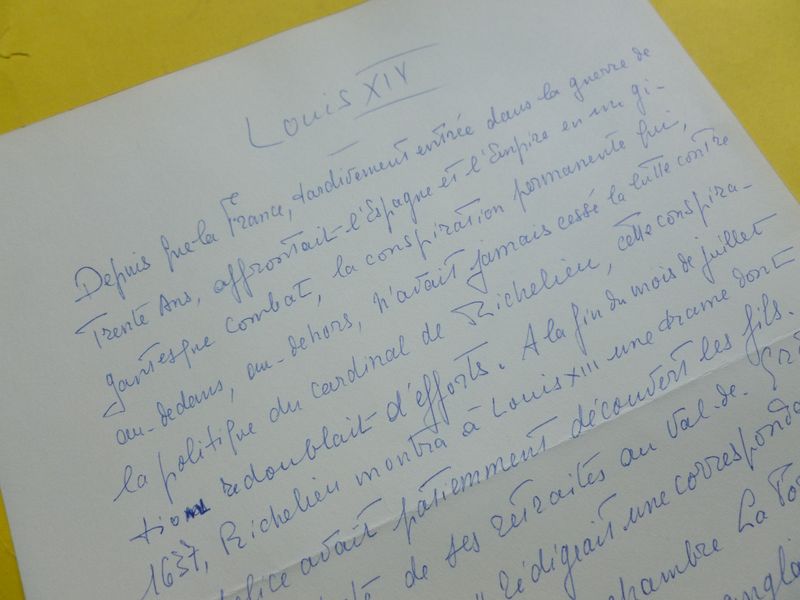 Louis XIV
Depuis que la France, tardivement entrée dans la guerre de
Trente Ans, affrontait l'Espagne et l'Empire en un gi-
gantesque combat, la conspiration permanente qui,
au-dedans, au-dehors, n'avait jamais cessé la lutte contre
la politique du cardinal de Richelieu, cette conspira-
tion redoublait d'efforts. A la fin du mois de juillet
1637, Richelieu montra à Louis XIII une trame dont
avait patiemment découvert les fils.
de ses retraites au Val-de-Grâ
rédigeait une correspondan
chambre La Por
anglai